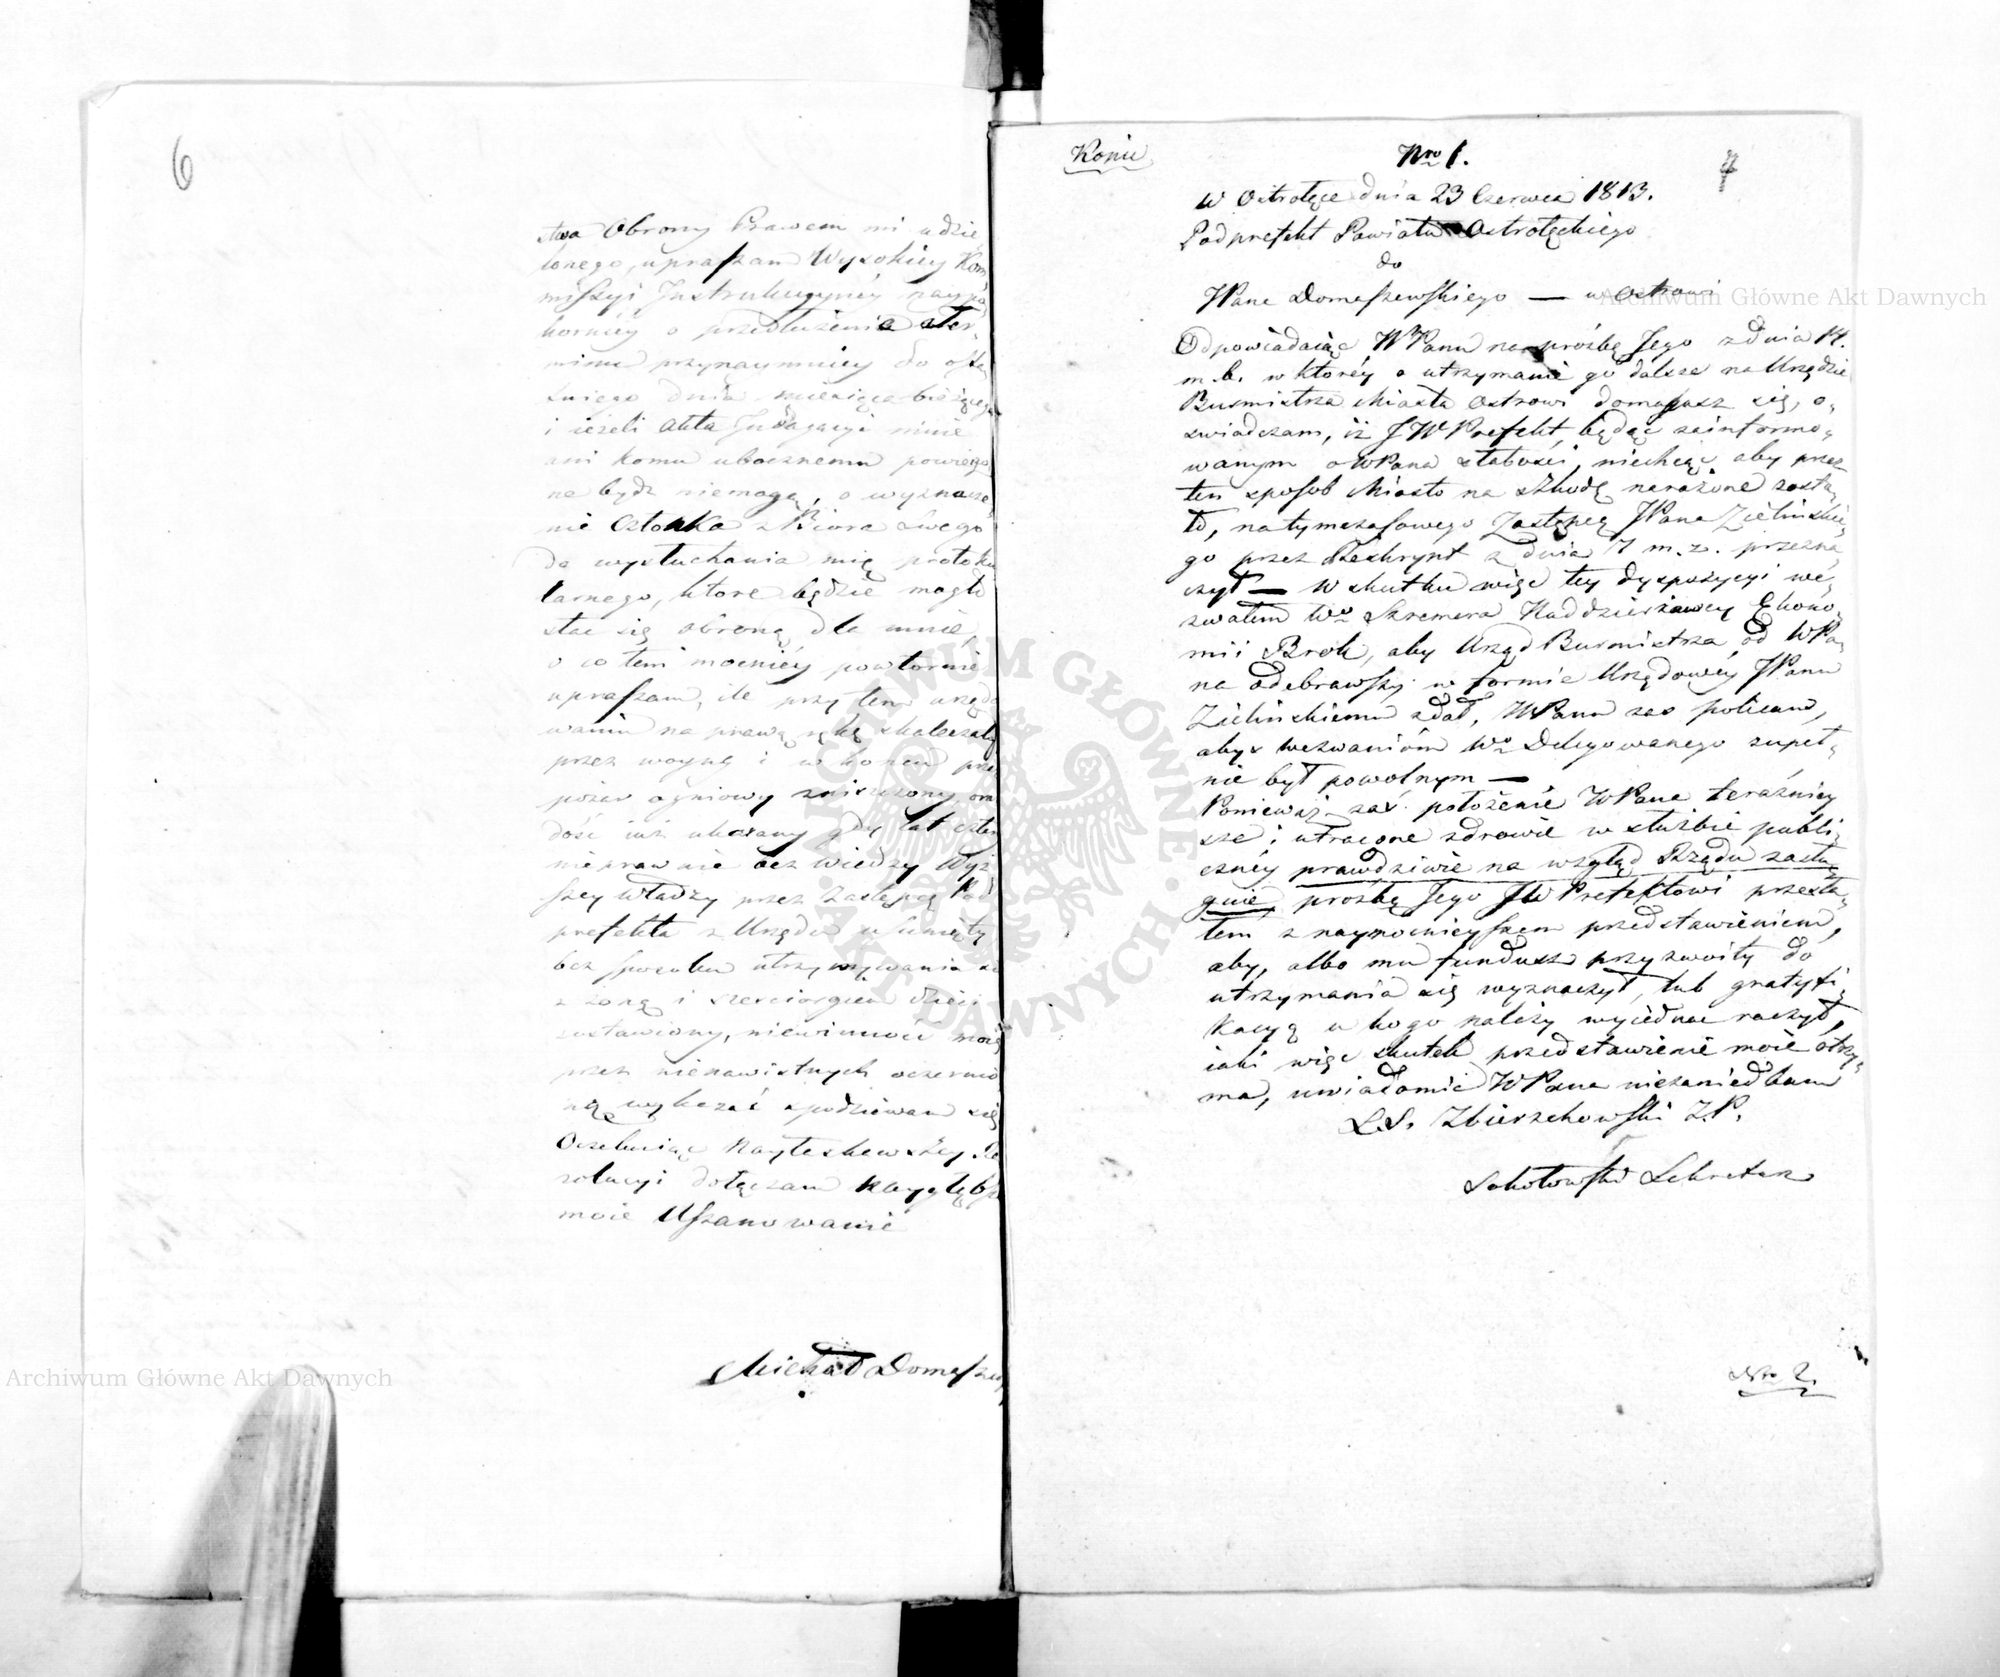 6
stwa Obrony Prawem mi udzie
lonego, upraszam Wysokiey Kom
missyi Instrukcyinéy naypo
korniéy o przedłużenie ter,
minu przynaymniey do osta
tniego dnia miesiąca bieżącego
i ieżeli Akta Indagacyi mnie
ani komu ubocznemu powierzo
ne bydź niemogą, o wyznacze
nie Członka z Biora Swego
do wysłuchania mię protoku
larnego, które będzie mogło
stać się obroną dla mnie,
o co tem mocniéy powtornie
upraszam, ile przy tem urzędo
waniu na prawą rękę skaleczały
przez woynę i w koncu przez
pożar ogniowy zniszczony,
dość iuż ukarany gdy lat cztery
nieprawnie bez wiedzy Wyż
szey Władzy przez Zastępcę Pod
prefekta z Urzędu usunięty
bez sposobu utrzymywania się
z żoną i sześciorgiem dzieci
zostawiony, niewinność moię
przez nienawistnych oczernio
ną wykazać spodziewam się
Oczekuiąc Nayłaskawszey Re
zolucyi dołączam Naygłębsze
moie Uszanowanie
Michał Domaszew
Kopia
Nro 1.
7
w Ostrołęce dnia 23 Czerwca 1813.
Podprefekt Powiatu Ostrołęckiego
do
JPana Domaszewskiego — w Ostrowi
Odpowiadaiąc WPanu na prośbę Jego z dnia 14.
m. b. w któréy o utrzymanie go dalsze na Urzędzie
Burmistrza Miasta Ostrowi domagasz się, o,
swiadczam, iż JWPrefekt, będąc zainformo,
wanym o WPana słabości, niechcąc aby przez
ten sposob Miasto na szkodę narażone zosta,
ło, na tymczasowego Zastępcę JPana Zielińskie,
go przez Reskrypt z dnia 17 m. z. przezna,
czył — W skutku więc tey dyspozycyi we,
zwałem Wo Skremera Naddzierżawcy Ekono,
mii Brok, aby Urząd Burmistrza od WPa,
na odebrawszy w formie Urzędowéy JPanu
Zielińskiemu zdał, WPanu zas polecam,
abyś wezwaniom Wo Delegowanego zupeł,
nie był powolnym —
Ponieważ zaś położenie WPana teraźniey
sze i utracone zdrowie w służbie publi,
cznéy prawdziwie na wzgląd Rządu zasłu,
guie, prośbę Jego JW Prefektowi przesła,
łem z naymocnieyszem przedstawieniem,
aby, albo mu fundusz przyzwoity do
utrzymania się wyznaczył, lub gratyfi,
kacyą u kogo należy wyiednać raczył,
iaki więc skutek przedstawienie moie otrzy,
ma, uwiadomić WPana niezaniedbam
L.S. Zbierzchowski Z.P.
Sokołowski Sekretarz
Nro 2.
Archiwum Główne Akt Dawnych
Archiwum Główne Akt Dawnych
ARCHIWUM GŁÓWNE AKT DAWNYCH